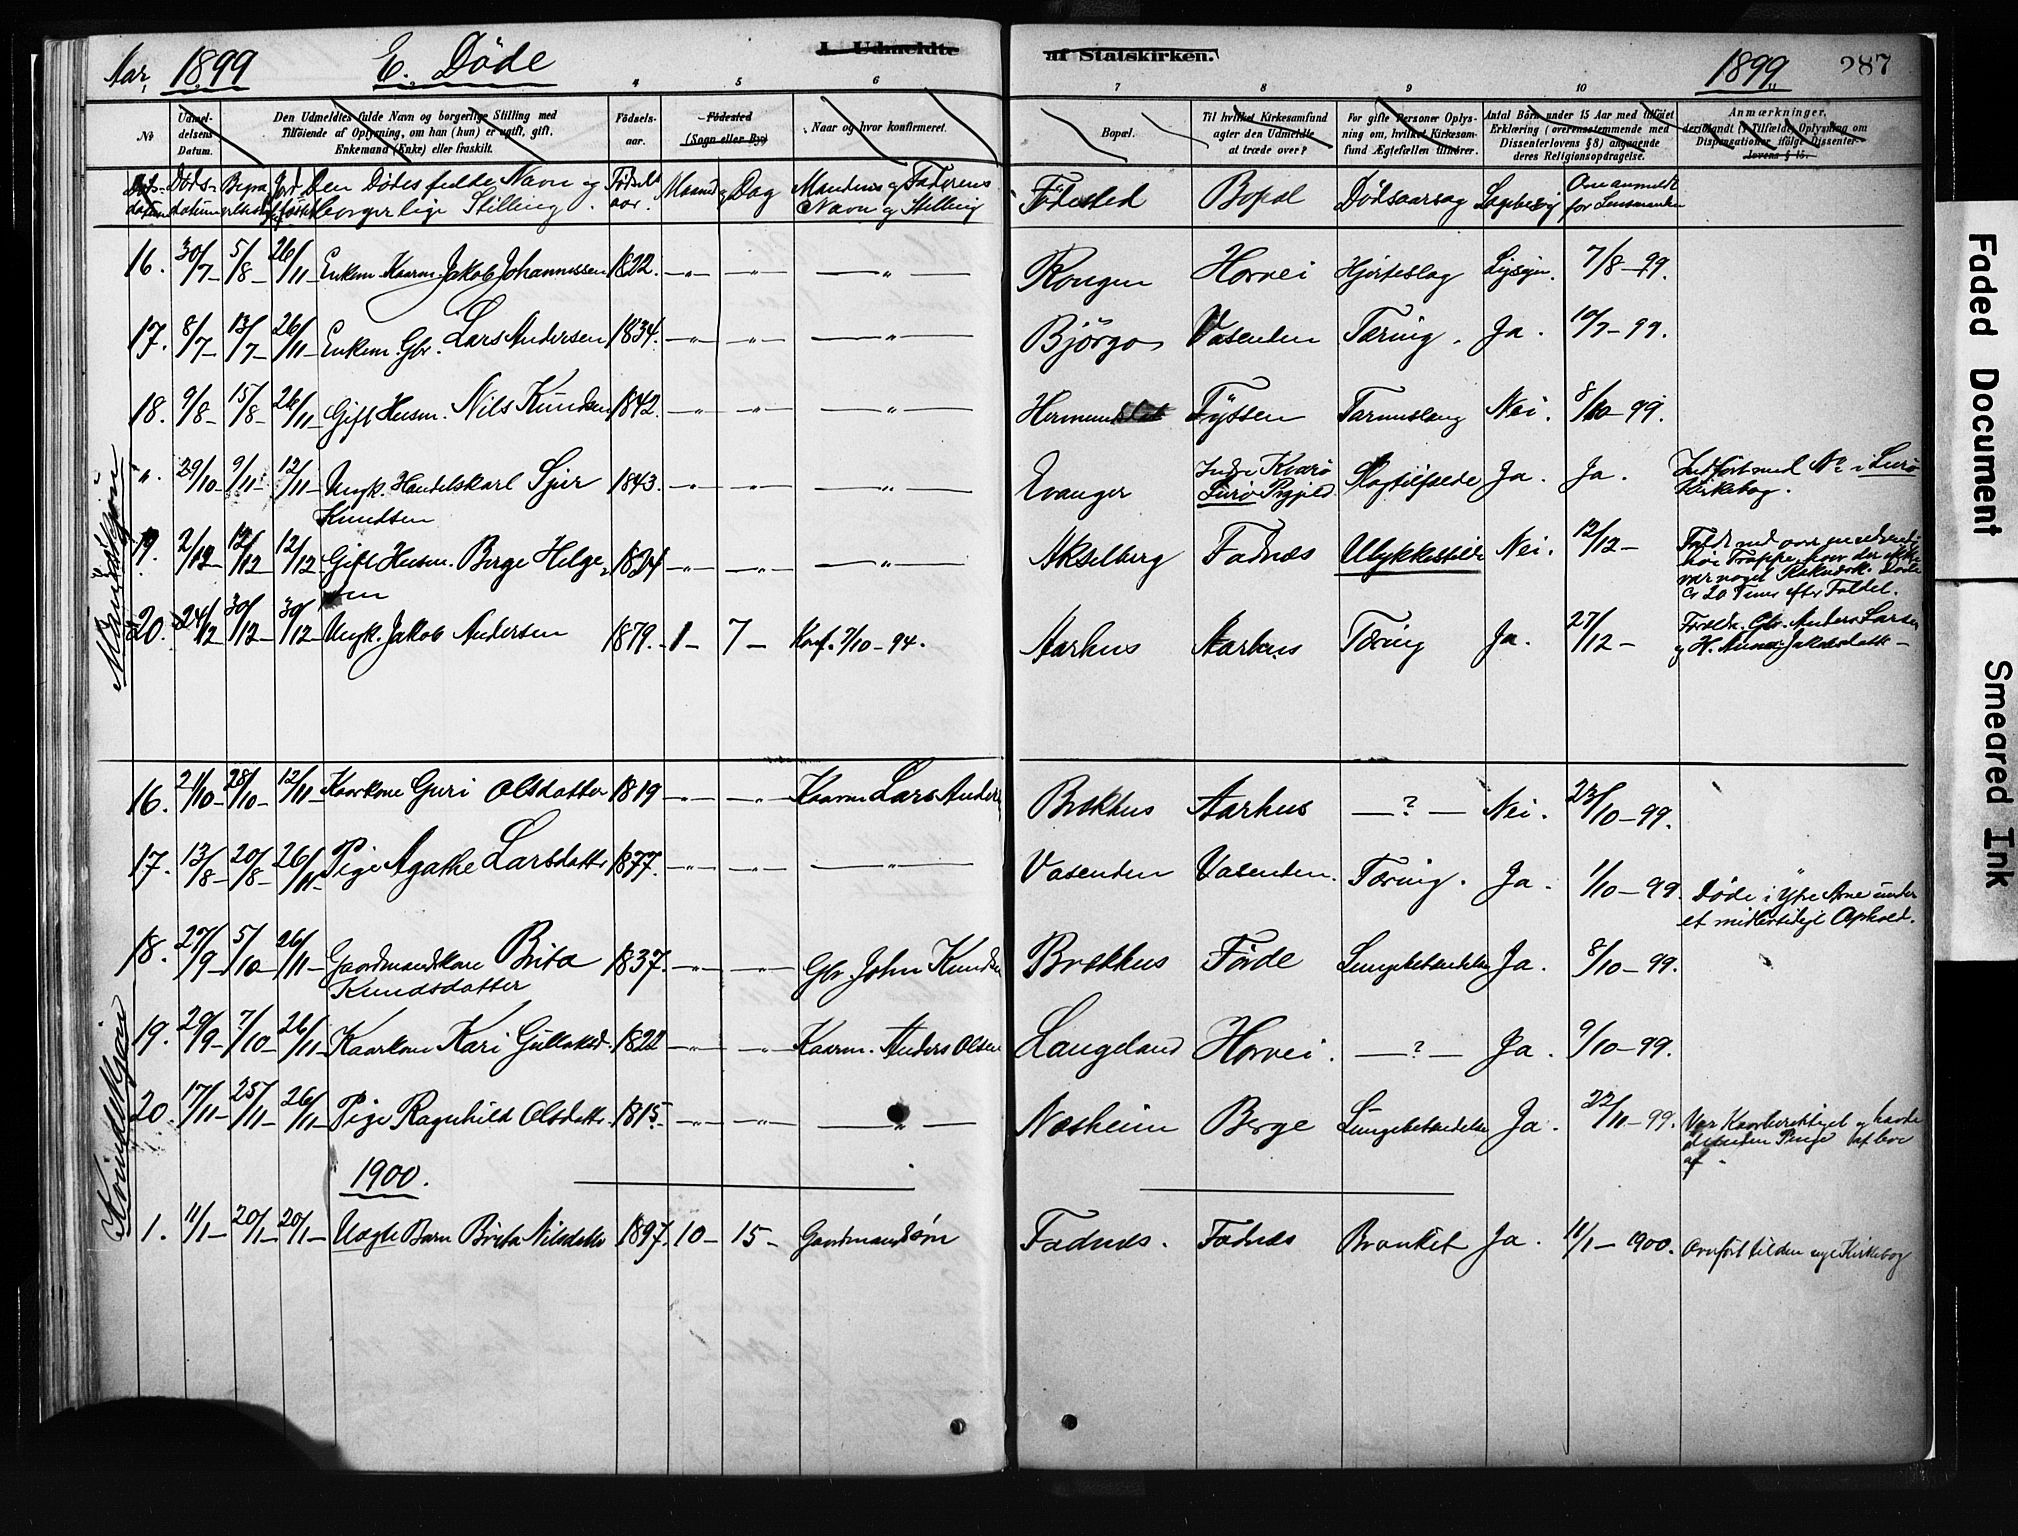 Aar, 1899 E. Døde
I. Udmeldte
af Statskirken.
1899 287
4 5 6 7 8 9 10
No
Udmeldelsens Datum.
Den Udmeldtes fulde Navn og borgerlige Stilling med
Tilføiende af Oplysning, om han (hun) er ugift, gift,
Enkemand (Enke) eller fraskilt.
Fødselsaar.
Fødested
(Sogn eller By)
Naar og hvor konfirmeret.
Bopæl.
Til hvilket Kirkesamfund
agter den Udmeldte
at træde over?
For gifte Personer Oplysning om, hvilket Kirkesamfund Ægtefællen tilhører.
Antal Børn under 15 Aar med tilføiet
Erklæring (overensstemmende med
Dissenterlovens § 8) angaaende
deres Religionsopdragelse.
Anmærkninger,
deriblandt (i Tilfælde) Oplysning om
Dispensationer ifølge Dissenterlovens § 15.
Dødsdatum Den Dødes fulde Navn og borgerlige Stilling. Fødselsaar. Maaned og Dag Mandens og Faderens Navn og Stilling Fødested Bopæl Dødsaarsag Lægebesøg Om anmeldt for Lensmanden
Mandkjøn
16. 30/7 – 5/8 – 26/11 Enkem. Kaarm. Jakob Johannessen 1822. – " – – " – – " – Rongen Horvei Hjerteslag Ligsyn. 7/8 – 99.
17. 8/7 – 13/7 – 26/11 – Enkem. Gbr. Lars Andersen 1834. – " – – " – – " – Bjørgo Vasenden Tæring. Ja. 10/7 – 99.
18. 9/8 – 15/8 – 26/11 – Gift Husm. Nils Knudsen 1842. – " – – " – – " – Fyssen Tarmuslæng Nei. 8/10 – 99.
". 29/10 – 9/11 – 12/11 – Ungk. Handelskarl Sjur 1843. – " – – " – – " – Evanger Indre Kvarø Slagtilfælde Ja. Ja. Indført med No i Lurø
Knudsen Lurø Prgjeld Kirkebog.
19. 2/12 – 12/12 – 12/12 – Gift Husm. Berge Helge- 1824 – " – – " – – " – Akselberg Fadnæs Ulykkestilde Nei. 12/12 –
sen
Døde
Cr 20 Timer efter Faldet.
20. 24/12 – 30/12 – 30/12 – Ungk. Jakob Andersen 1879. – 1 – 7 – Konf. 7/10 – 94. Aarhus Aarhus Tæring Ja. 27/12 – Foreldr. Gbr. Anders Larsen
og H. Anna Jakobsdatt –
Kvindekjøn
16. 21/10 – 28/10 – 12/11 – Kaarkone Guri Olsdatter 1819 – " – – " – Kaarm Lars Anders Brekhus Aarhus – ? – Nei. 23/10 – 99.
17. 13/8 – 20/8 – 26/11 – Pige Agathe Larsdatter 1877. – " – – " – – " – Vasenden Vasenden. Tæring. Ja. 1/10 – 99. Døde i Ytre Arne under
et midlertidigt Ophold.
18. 27/9 – 5/10 – 26/11 – Gaardmandskone Brita 1837. – " – – " – Gbr. John Knudsen Brekkus Førde Lungebetændelse Ja. 8/10 – 99.
Knudsdatter
19. 29/9 – 7/10 – 26/11 – Kaarkone Kari Gullaksd. 1822 – " – – " – Kaarm. Anders Olsen Langeland Horvei. – ? – Ja. 9/10 – 99.
20. 17/11 – 25/11 – 26/11 – Pige Ragnhild Olsdatter 1815. – " – – " – – " – Næsheim Berge Lungebetændelse Ja. 22/11 – 99. Var Kaarberettiget og havde
desuden Penge at leve
af.
1900.
1. 11/1 – 20/1 – 20/1 – Uægte Barn Brita Nilsdatter 1897. 10 – 15 – Gaardmandsøn Fadnæs. Fadnæs Bronkit Ja. 11/1 – 1900. Overført til den nye Kirkebog
Faded Document
Smeared Ink